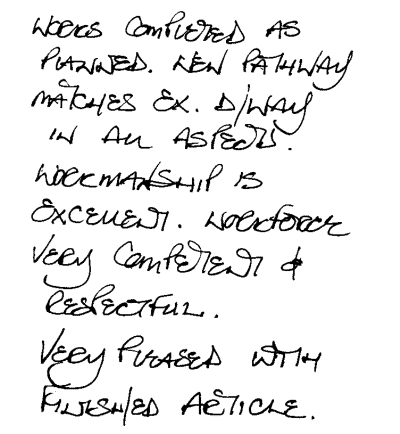 WORKS COMPLETED AS
PLANNED. NEW PATHWAY
MATCHES EX. D/WAY
IN ALL ASPECTS.
WORKMANSHIP IS
EXCELLENT. WORKFORCE
VERY COMPETENT &
RESPECTFUL.
VERY PLEASED WITH
FINISHED ARTICLE.